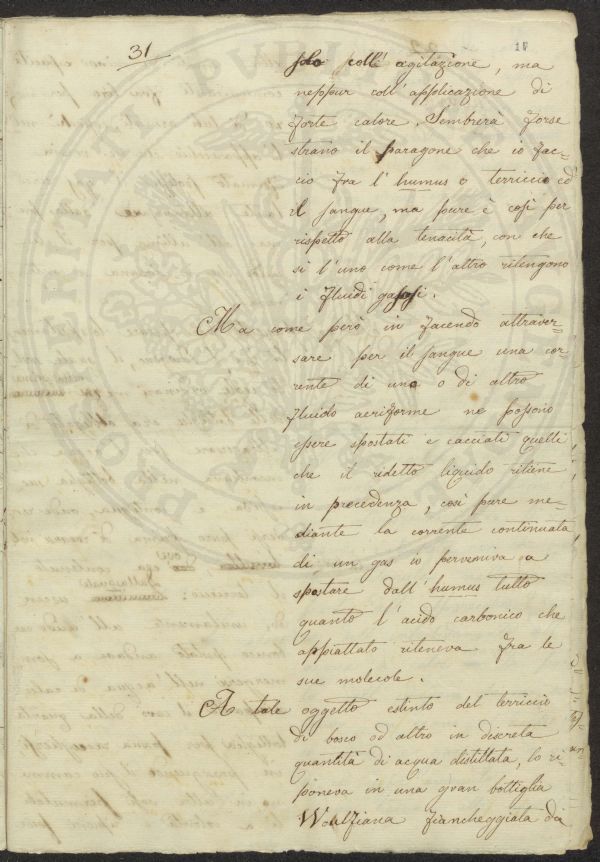 31
17
solo coll' agitazione, ma
neppur coll' applicazione di
forte calore. Sembrerà forse
strano il paragone che io fac=
cio fra l' humus o terriccio ed
il sangue, ma pure è così per
rispetto alla tenacità, con che
sì l' uno come l' altro ritengono
i fluidi gasosi.
Ma come però in facendo attraver=
sare per il sangue una cor=
rente di uno o di altro
fluido aeriforme ne possono
essere spostati e cacciati quelli
che il ridetto liquido ritiene
in precedenza, così pure me=
diante la corrente continuata
di un gas io perveniva a
spostare dall' humus tutto
quanto l' acido carbonico che
appiattato riteneva fra le
sue molecole.
A tale oggetto estinto del terriccio
di bosco od altro in discreta
quantità di acqua distillata, lo ri=
poneva in una gran bottiglia
Woulfiana fiancheggiata da